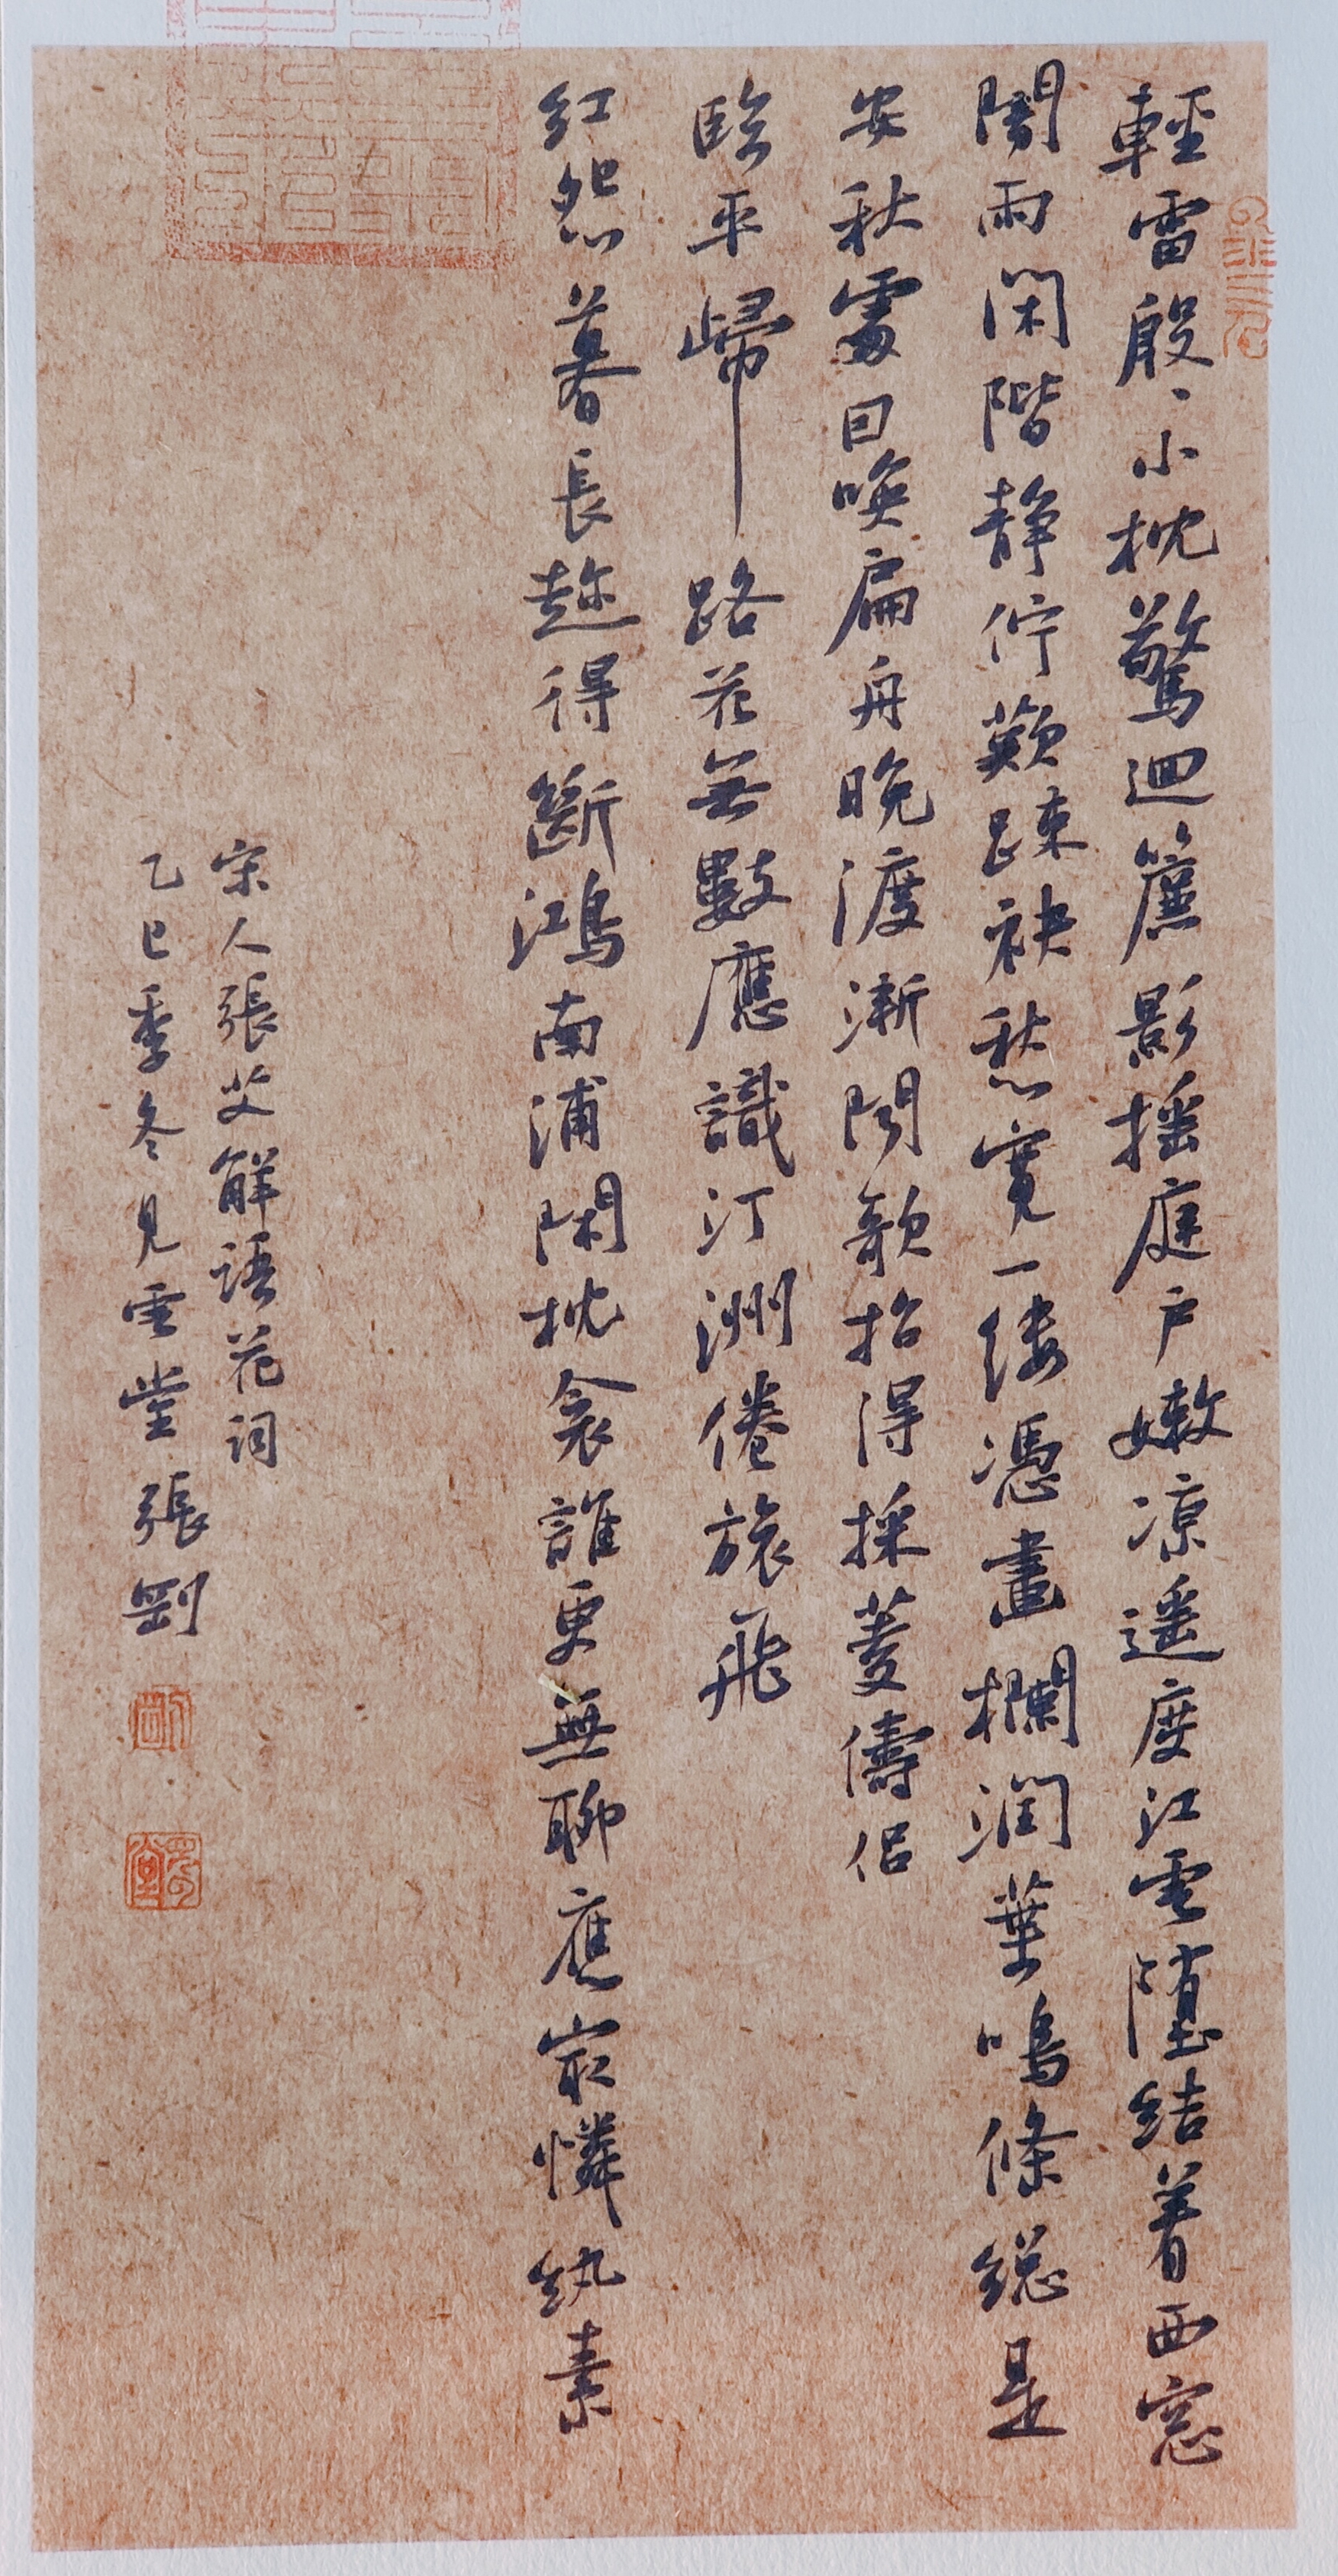 輕雷殷、小枕驚迴簾影摇庭户嫩凉遥度江雲墮結着西窓
闇雨閑階静佇歎踈袂愁寬一縷憑畫欄潤葉鳴條総是
安秋處回喚扁舟晚渡漸聞歌招得採菱儔侣
臨平歸路花無數應識汀洲倦旅飛
紅怨暮長趂得斷鴻南浦閑枕衾誰更無聊應冣憐紈素
宋人張艾解語花詞
乙巳季冬見雲堂張剛